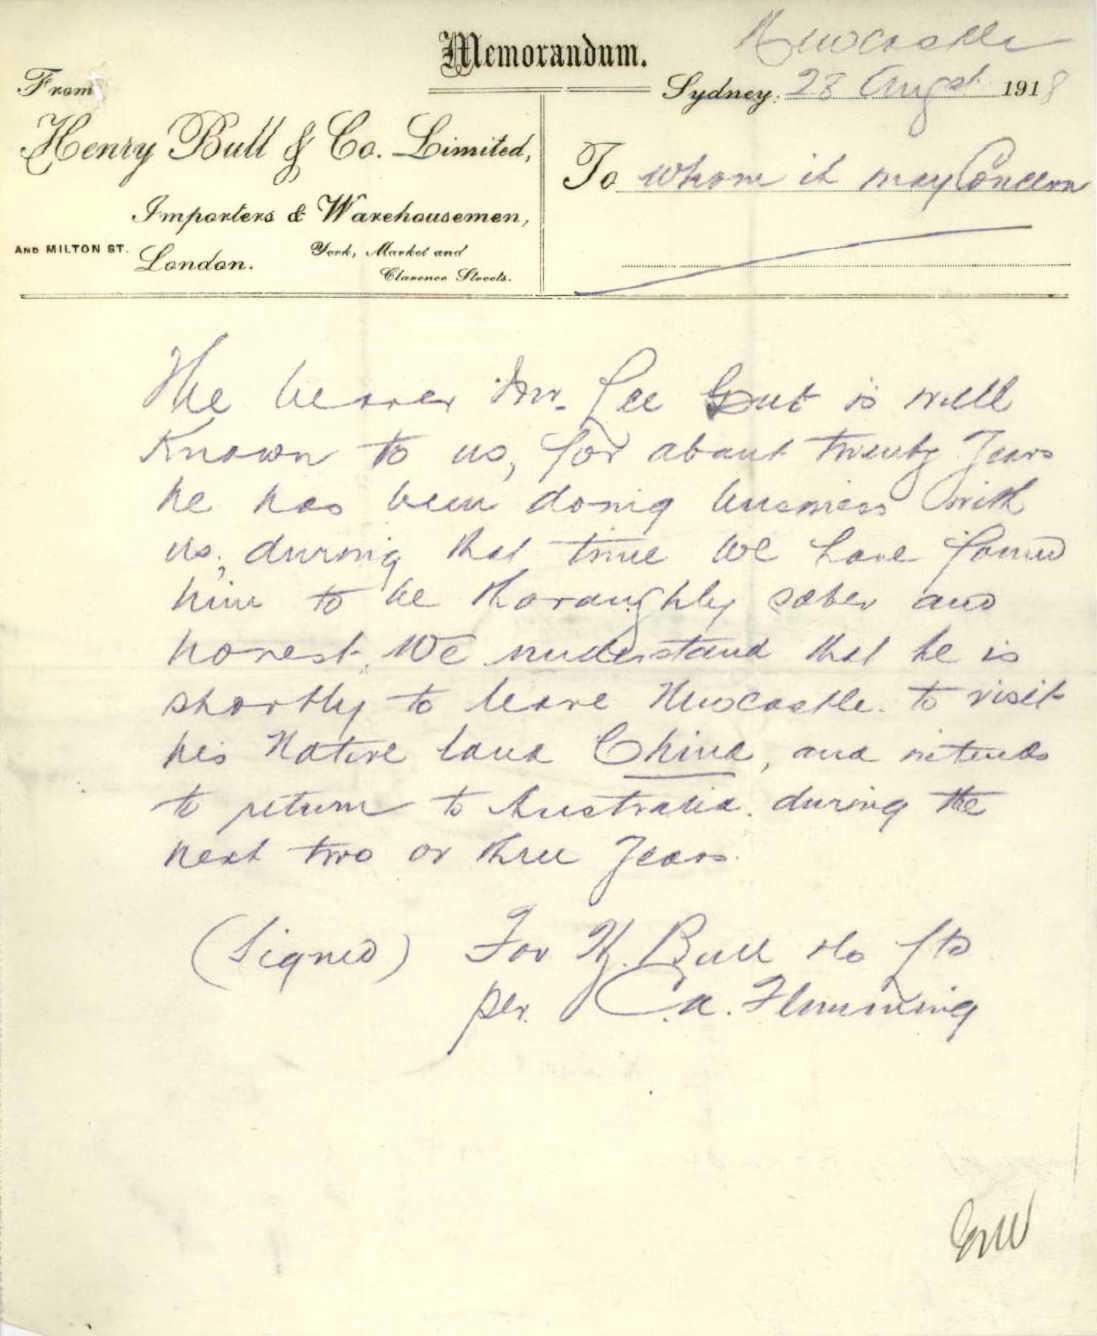 Memorandum.
Newcastle
From
Sydney, 28 Augst 1918
Henry Bull & Co. Limited,
To whom it may Concern
Importers & Warehousemen,
AND MILTON ST. London.
York, Market and
Clarence Streets.
The bearer Mr. Lee Gut is well
Known to us, for about twenty Years
he has been doing business with
us, during that time we have found
him to be thoroughly sober and
honest. We understand that he is
shortly to leave Newcastle. to visit
his Native land China, and intends
to return to Australia. during the
next two or three Years.
(Signed) For H. Bull & Co Ltd
per. C.A. Flemming